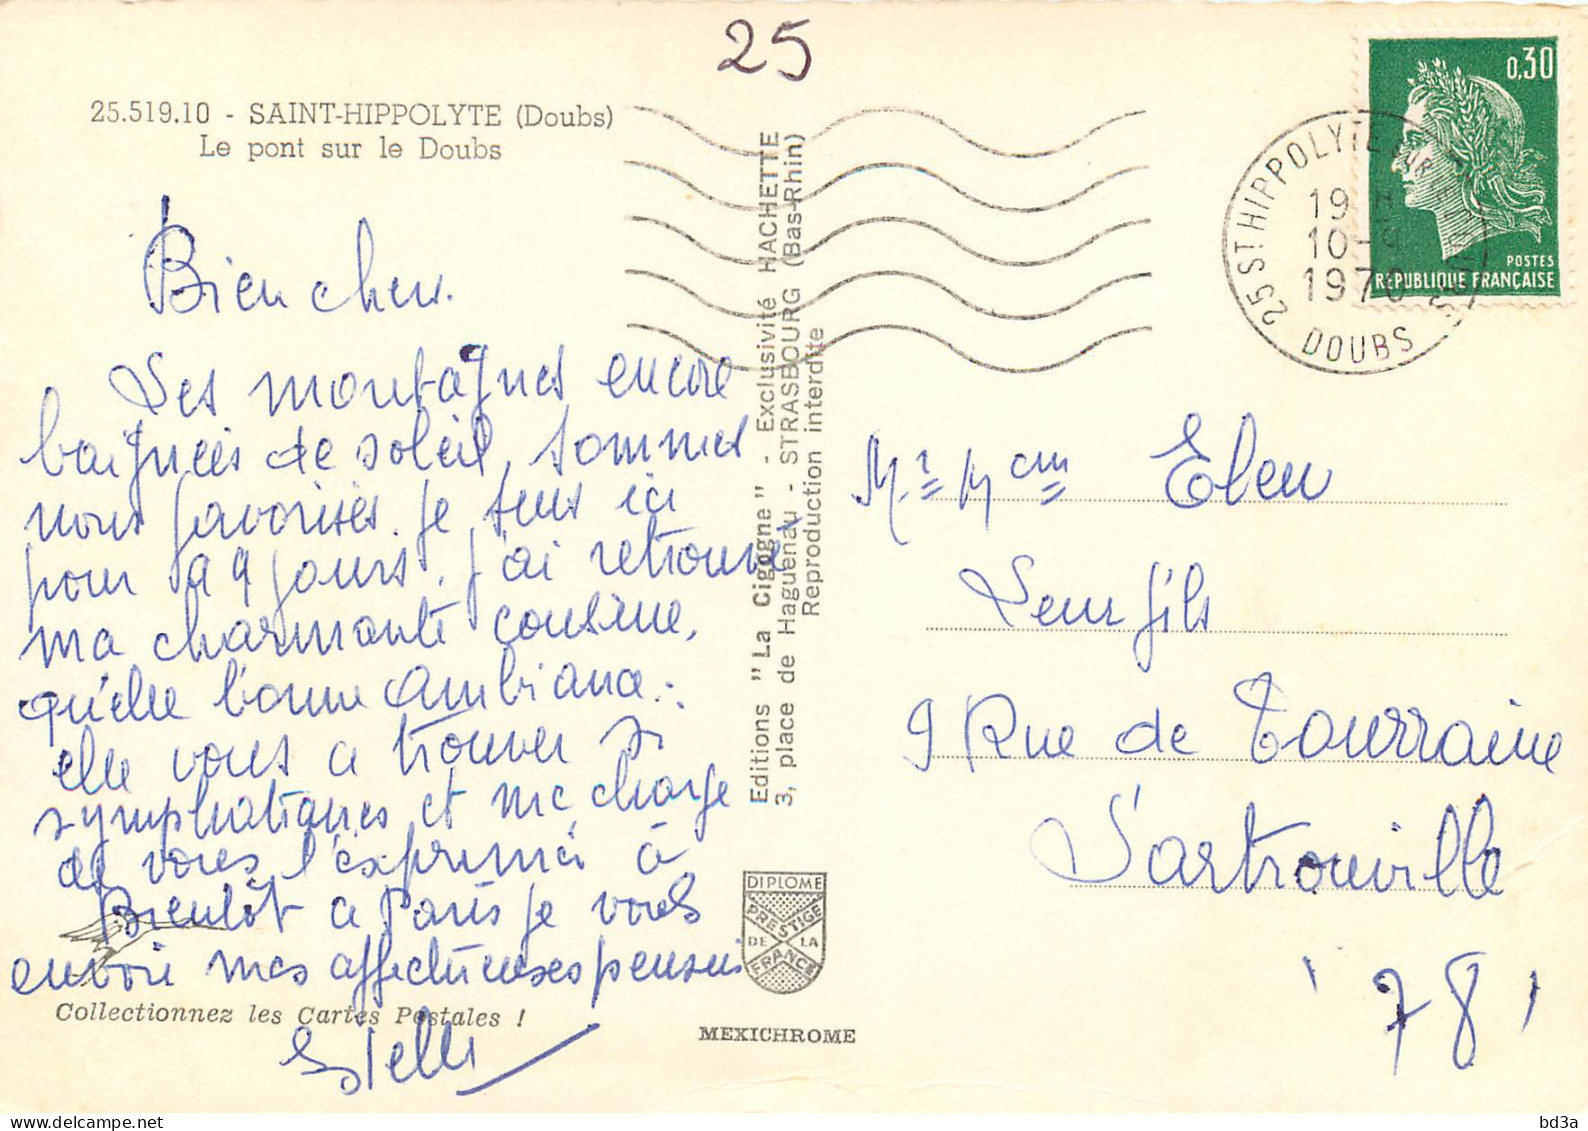 25
25.519.10 - SAINT-HIPPOLYTE (Doubs)
Le pont sur le Doubs
Bien chers.
Les montagnes encore
baignées de soleil, sommes
nous favorisés. Je suis ici
pour 9 jours. j'ai retrouvé
ma charmante cousine,
qu'elle bonne ambiance.
elle vous a trouver si
symphatiques et me charge
de vous l'exprimer à
Bientôt a Paris je vous
envoie mes affectueuses pensées
Estelle
Collectionnez les Cartes Postales !
Editions "La Cigogne" - Exclusivité HACHETTE
3, place de Haguenau - STRASBOURG (Bas-Rhin)
Reproduction interdite
DIPLOME
PRESTIGE
DE LA
FRANCE
MEXICHROME
0,30
POSTES
REPUBLIQUE FRANÇAISE
25 ST HIPPOLYTE SUR LE DOUBS
19 H
10-9
1970
DOUBS
Mr = Mme =
Leur fils
9 Rue de Tourraine
Sartrouville
'78'
bd3a